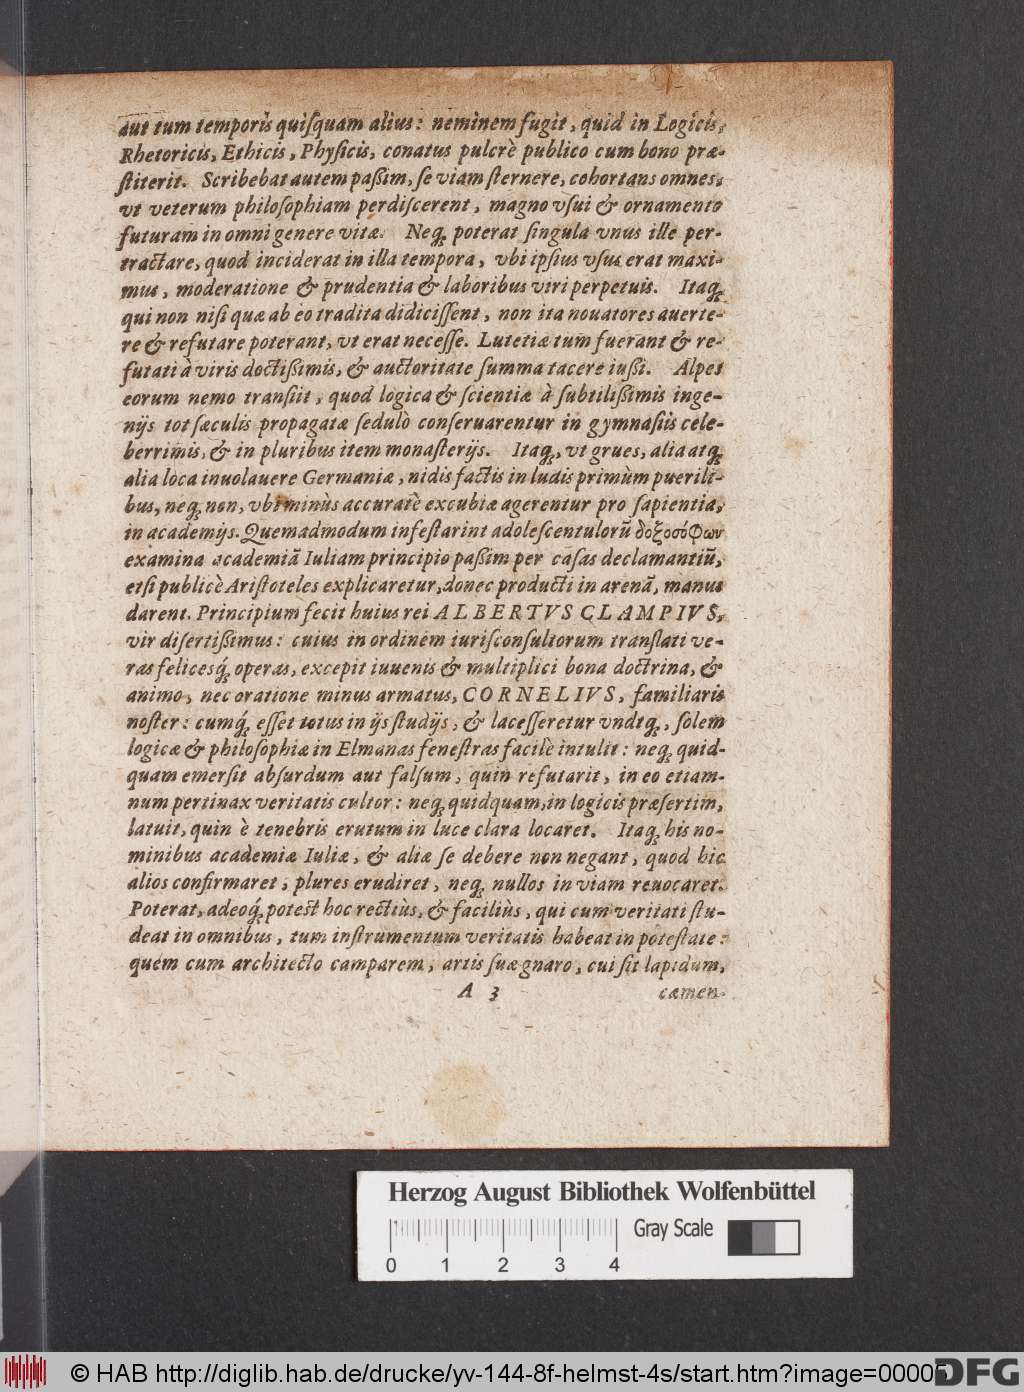 aut tum temporis quiſquam alius: neminem fugit, quid in Logicis,
Rhetoricis, Ethicis, Phyſicis, conatus pulcrè publico cum bono præ-
ſtiterit. Scribebat autem paßim, ſe viam ſternere, cohortans omnes,
vt veterum philoſophiam perdiſcerent, magno vſui & ornamento
futuram in omni genere vitæ. Neq́; poterat ſingula vnus ille per-
tractare, quod inciderat in illa tempora, vbi ipſius vſus erat maxi-
mus, moderatione & prudentia & laboribus viri perpetuis. Itaq́;
qui non niſi quæ ab eo tradita didiciſſent, non ita nouatores auerte-
re & refutare poterant, vt erat neceſſe. Lutetiæ tum fuerant & re-
futati à viris doctißimis, & auctoritate ſumma tacere iußi. Alpes
eorum nemo tranſiit, quod logica & ſcientiæ à ſubtilißimis inge-
nijs tot ſæculis propagatæ ſedulò conſeruarentur in gymnaſiis cele-
berrimis, & in pluribus item monaſterijs. Itaq́;, vt grues, alia atq́;
alia loca inuolauere Germaniæ, nidis factis in ludis primùm puerili-
bus, neq́; non, vbi minùs accuratè excubiæ agerentur pro ſapientia,
in academijs. Quemadmodum infeſtarint adoleſcentulorũ δοξοσόφων
examina academiã Iuliam principio paßim per caſas declamantiũ,
etſi publicè Ariſtoteles explicaretur, donec producti in arenã, manus
darent. Principium fecit huius rei ALBERTVS CLAMPIVS,
vir diſertißimus: cuius in ordinem iuriſconſultorum tranſlati ve-
ras felicesq́; operas, excepit iuuenis & multiplici bona doctrina, &
animo, nec oratione minus armatus, CORNELIVS, familiaris
noſter: cumq́; eſſet totus in ijs ſtudijs, & laceſſeretur vndiq́;, ſolem
logicæ & philoſophiæ in Elmanas feneſtras facilè intulit: neq́; quid-
quam emerſit abſurdum aut falſum, quin refutarit, in eo etiam-
num pertinax veritatis cultor: neq́; quidquam, in logicis præſertim,
latuit, quin è tenebris erutum in luce clara locaret. Itaq́; his no-
minibus academiæ Iuliæ, & aliæ ſe debere non negant, quod hic
alios confirmaret, plures erudiret, neq́; nullos in viam reuocaret.
Poterat, adeoq́; poteſt hoc rectiùs, & faciliùs, qui cum veritati ſtu-
deat in omnibus, tum inſtrumentum veritatis habeat in poteſtate:
quem cum architecto camparem, artis ſuæ gnaro, cui ſit lapidum,
A 3 cæmen-
Herzog August Bibliothek Wolfenbüttel
Gray Scale
0 1 2 3 4
© HAB http://diglib.hab.de/drucke/yv-144-8f-helmst-4s/start.htm?image=00005
DFG